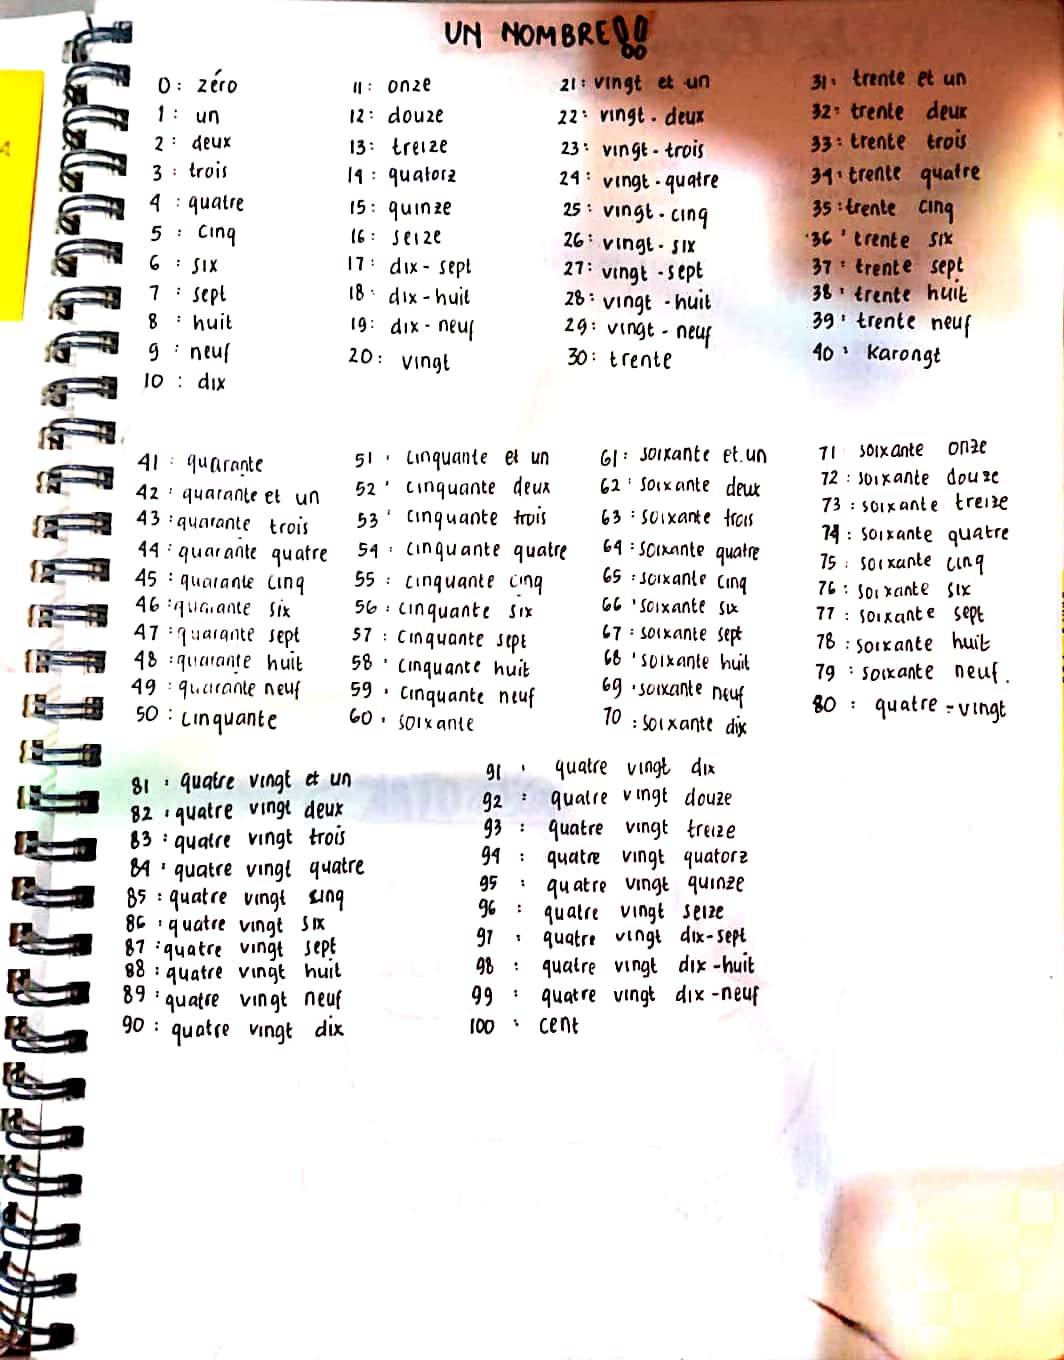 UN NOMBRE!!
0 : zéro
1 : un
2 : deux
3 : trois
4 : quatre
5 : cinq
6 : six
7 : sept
8 : huit
9 : neuf
10 : dix
11 : onze
12 : douze
13 : treize
14 : quatorz
15 : quinze
16 : seize
17 : dix - sept
18 : dix - huit
19 : dix - neuf
20 : vingt
21 : vingt et un
22 : vingt - deux
23 : vingt - trois
24 : vingt - quatre
25 : vingt - cinq
26 : vingt - six
27 : vingt - sept
28 : vingt - huit
29 : vingt - neuf
30 : trente
31 : trente et un
32 : trente deux
33 : trente trois
34 : trente quatre
35 : trente cinq
36 : trente six
37 : trente sept
38 : trente huit
39 : trente neuf
40 : karongt
41 : quarante
42 : quarante et un
43 : quarante trois
44 : quarante quatre
45 : quarante cinq
46 : quarante six
47 : quarante sept
48 : quarante huit
49 : quarante neuf
50 : cinquante
51 : cinquante et un
52 : cinquante deux
53 : cinquante trois
54 : cinquante quatre
55 : cinquante cinq
56 : cinquante six
57 : cinquante sept
58 : cinquante huit
59 : cinquante neuf
60 : soixante
61 : soixante et un
62 : soixante deux
63 : soixante trois
64 : soixante quatre
65 : soixante cinq
66 : soixante six
67 : soixante sept
68 : soixante huit
69 : soixante neuf
70 : soixante dix
71 soixante onze
72 : soixante douze
73 : soixante treize
74 : soixante quatre
75 : soixante cinq
76 : soixante six
77 : soixante sept
78 : soixante huit
79 : soixante neuf.
80 : quatre - vingt
81 : quatre vingt et un
82 : quatre vingt deux
83 : quatre vingt trois
84 : quatre vingt quatre
85 : quatre vingt cinq
86 : quatre vingt six
87 : quatre vingt sept
88 : quatre vingt huit
89 : quatre vingt neuf
90 : quatre vingt dix
91 : quatre vingt dix
92 : quatre vingt douze
93 : quatre vingt treize
94 : quatre vingt quatorz
95 : quatre vingt quinze
96 : quatre vingt seize
97 : quatre vingt dix-sept
98 : quatre vingt dix -huit
99 : quatre vingt dix -neuf
100 : cent